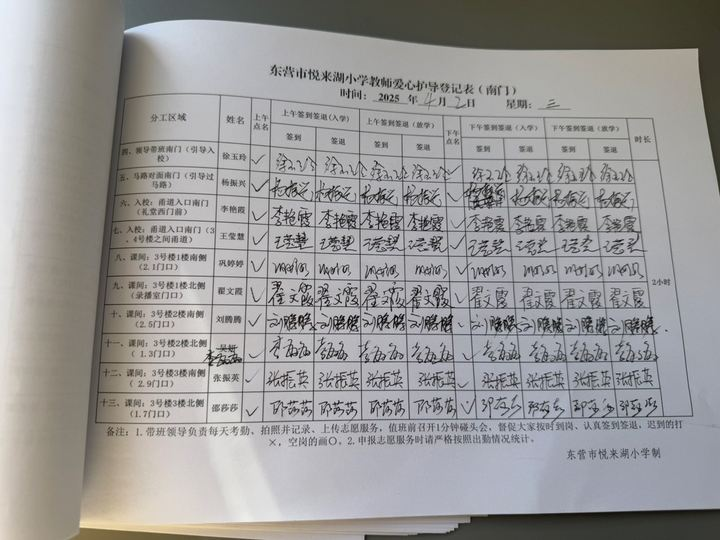 东营市悦来湖小学教师爱心护导登记表（南门）
时间： 2025 年 4 月 2 日 星期： 三
分工区域 姓名 上午点名 上午签到签退(入学) 上午签到签退(放学) 下午点名 下午签到签退(入学) 下午签到签退(放学) 时长
签到 签退 签到 签退 签到 签退 签到 签退
四、领导带班南门（引导入校） 徐玉玲 ✓ 徐玉玲 徐玉玲 徐玉玲 徐玉玲 徐玉玲 徐玉玲 徐玉玲 徐玉玲
五、马路对面南门（引导过马路） 杨振兴 ✓ 杨振兴 杨振兴 杨振兴 杨振兴 ✓ 杨振兴 杨振兴 杨振兴
六、入校：甬道入口南门（礼堂西门前） 李艳霞 ✓ 李艳霞 李艳霞 李艳霞 李艳霞 ✓ 李艳霞 李艳霞 李艳霞 李艳霞
七、入校：甬道入口南门（3、4号楼之间甬道） 王莹慧 ✓ 王莹慧 王莹慧 王莹慧 王莹慧 ✓ 王莹慧 王莹慧 王莹慧 王莹慧
八、课间：3号楼1楼南侧（2.1门口） 巩婷婷 ✓ ✓ 2小时
九、课间：3号楼1楼北侧（录播室门口） 翟文霞 ✓ 翟文霞 翟文霞 翟文霞 翟文霞 ✓ 翟文霞 翟文霞 翟文霞 翟文霞
十、课间：3号楼2楼南侧（2.5门口） 刘腾腾 ✓ 刘腾腾 刘腾腾 刘腾腾 刘腾腾 ✓ 刘腾腾 刘腾腾 刘腾腾 刘腾腾
十一、课间：3号楼2楼北侧（1.3门口） 吴妍 ✓ ✓
十二、课间：3号楼3楼南侧（2.9门口） 张振英 ✓ 张振英 张振英 张振英 张振英 ✓ 张振英 张振英 张振英 张振英
十三、课间：3号楼3楼北侧（1.7门口） 邵莎莎 ✓ 邵莎莎 邵莎莎 邵莎莎 邵莎莎 ✓ 邵莎莎 邵莎莎 邵莎莎 邵莎莎
备注：1.带班领导负责每天考勤、拍照并记录、上传志愿服务，值班前召开1分钟碰头会，督促大家按时到岗、认真签到签退，迟到的打
×，空岗的画〇。2.申报志愿服务时请严格按照出勤情况统计。
东营市悦来湖小学制